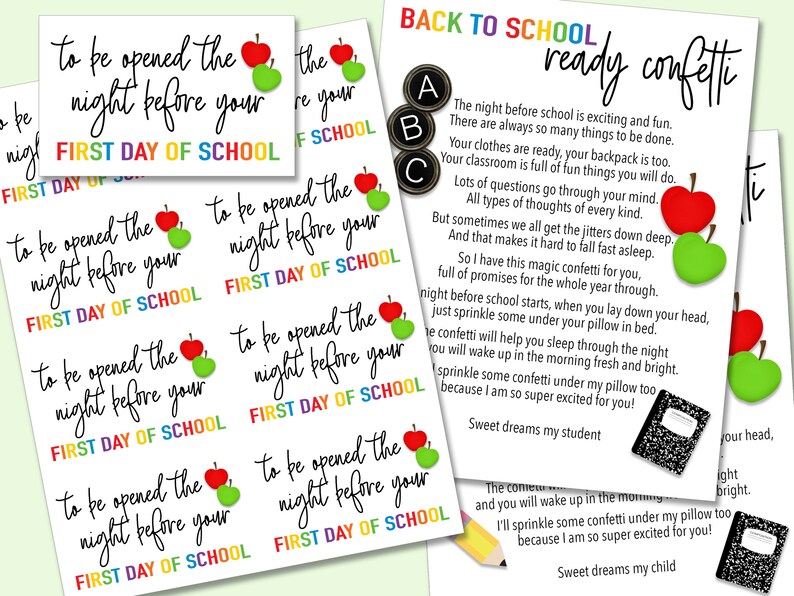 to be opened the
night before your
FIRST DAY OF SCHOOL
the
your
FIRST DAY OF SCHOOL
FIRST DAY OF SCHOOL
to be opened the
night before your
FIRST DAY OF SCHOOL
to be opened the
night before your
FIRST DAY OF SCHOOL
to be opened the
night before your
FIRST DAY OF SCHOOL
to be opened the
night before your
FIRST DAY OF SCHOOL
to be opened the
night before your
FIRST DAY OF SCHOOL
to be opened the
night before your
FIRST DAY OF SCHOOL
BACK TO SCHOOL
ready confetti
A
B
C
The night before school is exciting and fun.
There are always so many things to be done.
Your clothes are ready, your backpack is too.
Your classroom is full of fun things you will do.
Lots of questions go through your mind.
All types of thoughts of every kind.
But sometimes we all get the jitters down deep.
And that makes it hard to fall fast asleep.
So I have this magic confetti for you,
full of promises for the whole year through.
night before school starts, when you lay down your head,
just sprinkle some under your pillow in bed.
confetti will help you sleep through the night
you will wake up in the morning fresh and bright.
sprinkle some confetti under my pillow too
because I am so super excited for you!
Sweet dreams my student
your head,
The confetti will
night
and you will wake up in the morning
bright.
I'll sprinkle some confetti under my pillow too
because I am so super excited for you!
Sweet dreams my child